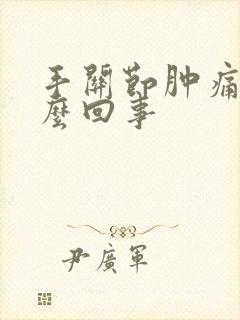 手關節肿痛
麼回事
尹廣軍